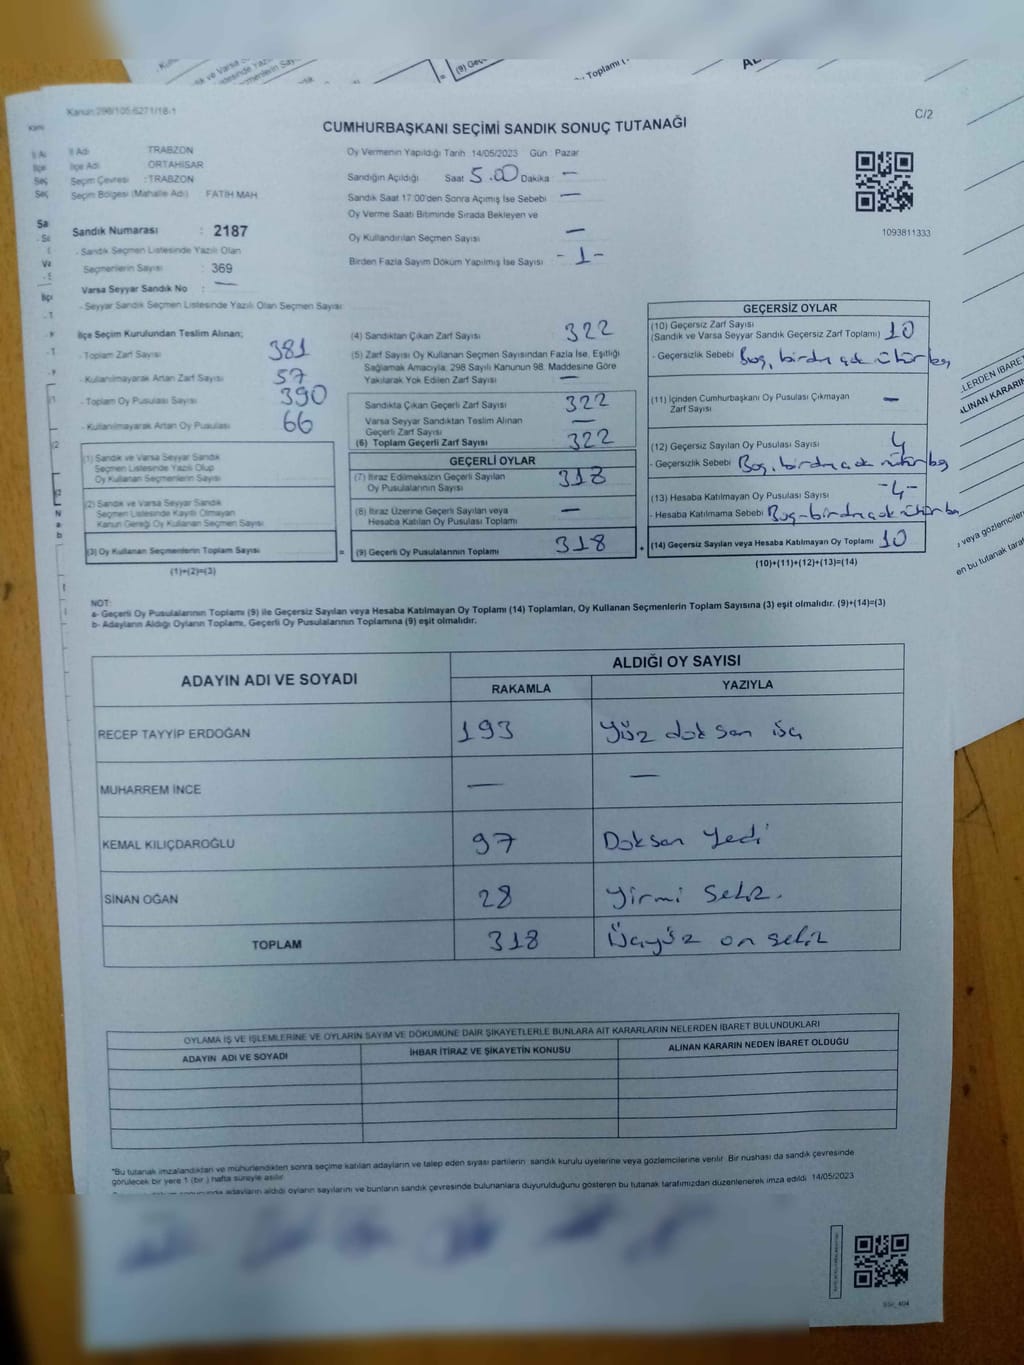 Kanun:298/105-6271/18-1
C/2
CUMHURBAŞKANI SEÇİMİ SANDIK SONUÇ TUTANAĞI
İl Adı TRABZON
İlçe Adı ORTAHİSAR
Seçim Çevresi :TRABZON
Seçim Bölgesi (Mahalle Adı) FATİH MAH
Sandık Numarası : 2187
- Sandık Seçmen Listesinde Yazılı Olan
Seçmenlerin Sayısı : 369
Varsa Seyyar Sandık No : —
- Seyyar Sandık Seçmen Listesinde Yazılı Olan Seçmen Sayısı
Oy Vermenin Yapıldığı Tarih 14/05/2023 Gün Pazar
Sandığın Açıldığı Saat 5.00 Dakika —
Sandık Saat 17:00'den Sonra Açımış İse Sebebi —
Oy Verme Saati Bitiminde Sırada Bekleyen ve
Oy Kullandırılan Seçmen Sayısı —
Birden Fazla Sayım Döküm Yapılmış İse Sayısı -1-
1093811333
İlçe Seçim Kurulundan Teslim Alınan;
- Toplam Zarf Sayısı 381
- Kullanılmayarak Artan Zarf Sayısı 57
- Toplam Oy Pusulası Sayısı 390
- Kullanılmayarak Artan Oy Pusulası 66
(1) Sandık ve Varsa Seyyar Sandık
Seçmen Listesinde Yazılı Olup
Oy Kullanan Seçmenlerin Sayısı
(2) Sandık ve Varsa Seyyar Sandık
Seçmen Listesinde Kayıtlı Olmayan
Kanun Gereği Oy Kullanan Seçmen Sayısı
(3) Oy Kullanan Seçmenlerin Toplam Sayısı =
(1)+(2)=(3)
(4) Sandıktan Çıkan Zarf Sayısı 322
(5) Zarf Sayısı Oy Kullanan Seçmen Sayısından Fazla İse, Eşitliği
Sağlamak Amacıyla, 298 Sayılı Kanunun 98. Maddesine Göre
Yakılarak Yok Edilen Zarf Sayısı —
Sandıkta Çıkan Geçerli Zarf Sayısı 322
Varsa Seyyar Sandıktan Teslim Alınan
Geçerli Zarf Sayısı —
(6) Toplam Geçerli Zarf Sayısı 322
GEÇERLİ OYLAR
(7) İtiraz Edilmeksizin Geçerli Sayılan
Oy Pusulalarının Sayısı 318
(8) İtiraz Üzerine Geçerli Sayılan veya
Hesaba Katılan Oy Pusulası Toplamı —
(9) Geçerli Oy Pusulalarının Toplamı 318 +
GEÇERSİZ OYLAR
(10) Geçersiz Zarf Sayısı
(Sandık ve Varsa Seyyar Sandık Geçersiz Zarf Toplamı) 10
- Geçersizlik Sebebi Boş, birden çok
(11) İçinden Cumhurbaşkanı Oy Pusulası Çıkmayan
Zarf Sayısı —
(12) Geçersiz Sayılan Oy Pusulası Sayısı 4
- Geçersizlik Sebebi Boş, birden çok
(13) Hesaba Katılmayan Oy Pusulası Sayısı -4-
- Hesaba Katılmama Sebebi Boş-birden çok
(14) Geçersiz Sayılan veya Hesaba Katılmayan Oy Toplamı 10
(10)+(11)+(12)+(13)=(14)
NOT:
a- Geçerli Oy Pusulalarının Toplamı (9) ile Geçersiz Sayılan veya Hesaba Katılmayan Oy Toplamı (14) Toplamları, Oy Kullanan Seçmenlerin Toplam Sayısına (3) eşit olmalıdır. (9)+(14)=(3)
b- Adayların Aldığı Oyların Toplamı, Geçerli Oy Pusulalarının Toplamına (9) eşit olmalıdır.
ADAYIN ADI VE SOYADI
ALDIĞI OY SAYISI
RAKAMLA YAZIYLA
RECEP TAYYİP ERDOĞAN 193 Yüz doksan üç
MUHARREM İNCE — —
KEMAL KILIÇDAROĞLU 97 Doksan yedi
SİNAN OĞAN 28 Yirmi sekiz.
TOPLAM 318 Üçyüz on sekiz
OYLAMA İŞ VE İŞLEMLERİNE VE OYLARIN SAYIM VE DÖKÜMÜNE DAİR ŞİKAYETLERLE BUNLARA AİT KARARLARIN NELERDEN İBARET BULUNDUKLARI
ADAYIN ADI VE SOYADI İHBAR İTİRAZ VE ŞİKAYETİN KONUSU ALINAN KARARIN NEDEN İBARET OLDUĞU
*Bu tutanak imzalandıktan ve mühürlendikten sonra seçime katılan adayların ve talep eden siyasi partilerin sandık kurulu üyelerine veya gözlemcilerine verilir. Bir nüshası da sandık çevresinde
görülecek bir yere 1 (bir ) hafta süreyle asılır.
adayların aldığı oyların sayılarını ve bunların sandık çevresinde bulunanlara duyurulduğunu gösteren bu tutanak tarafımızdan düzenlenerek imza edildi. 14/05/2023